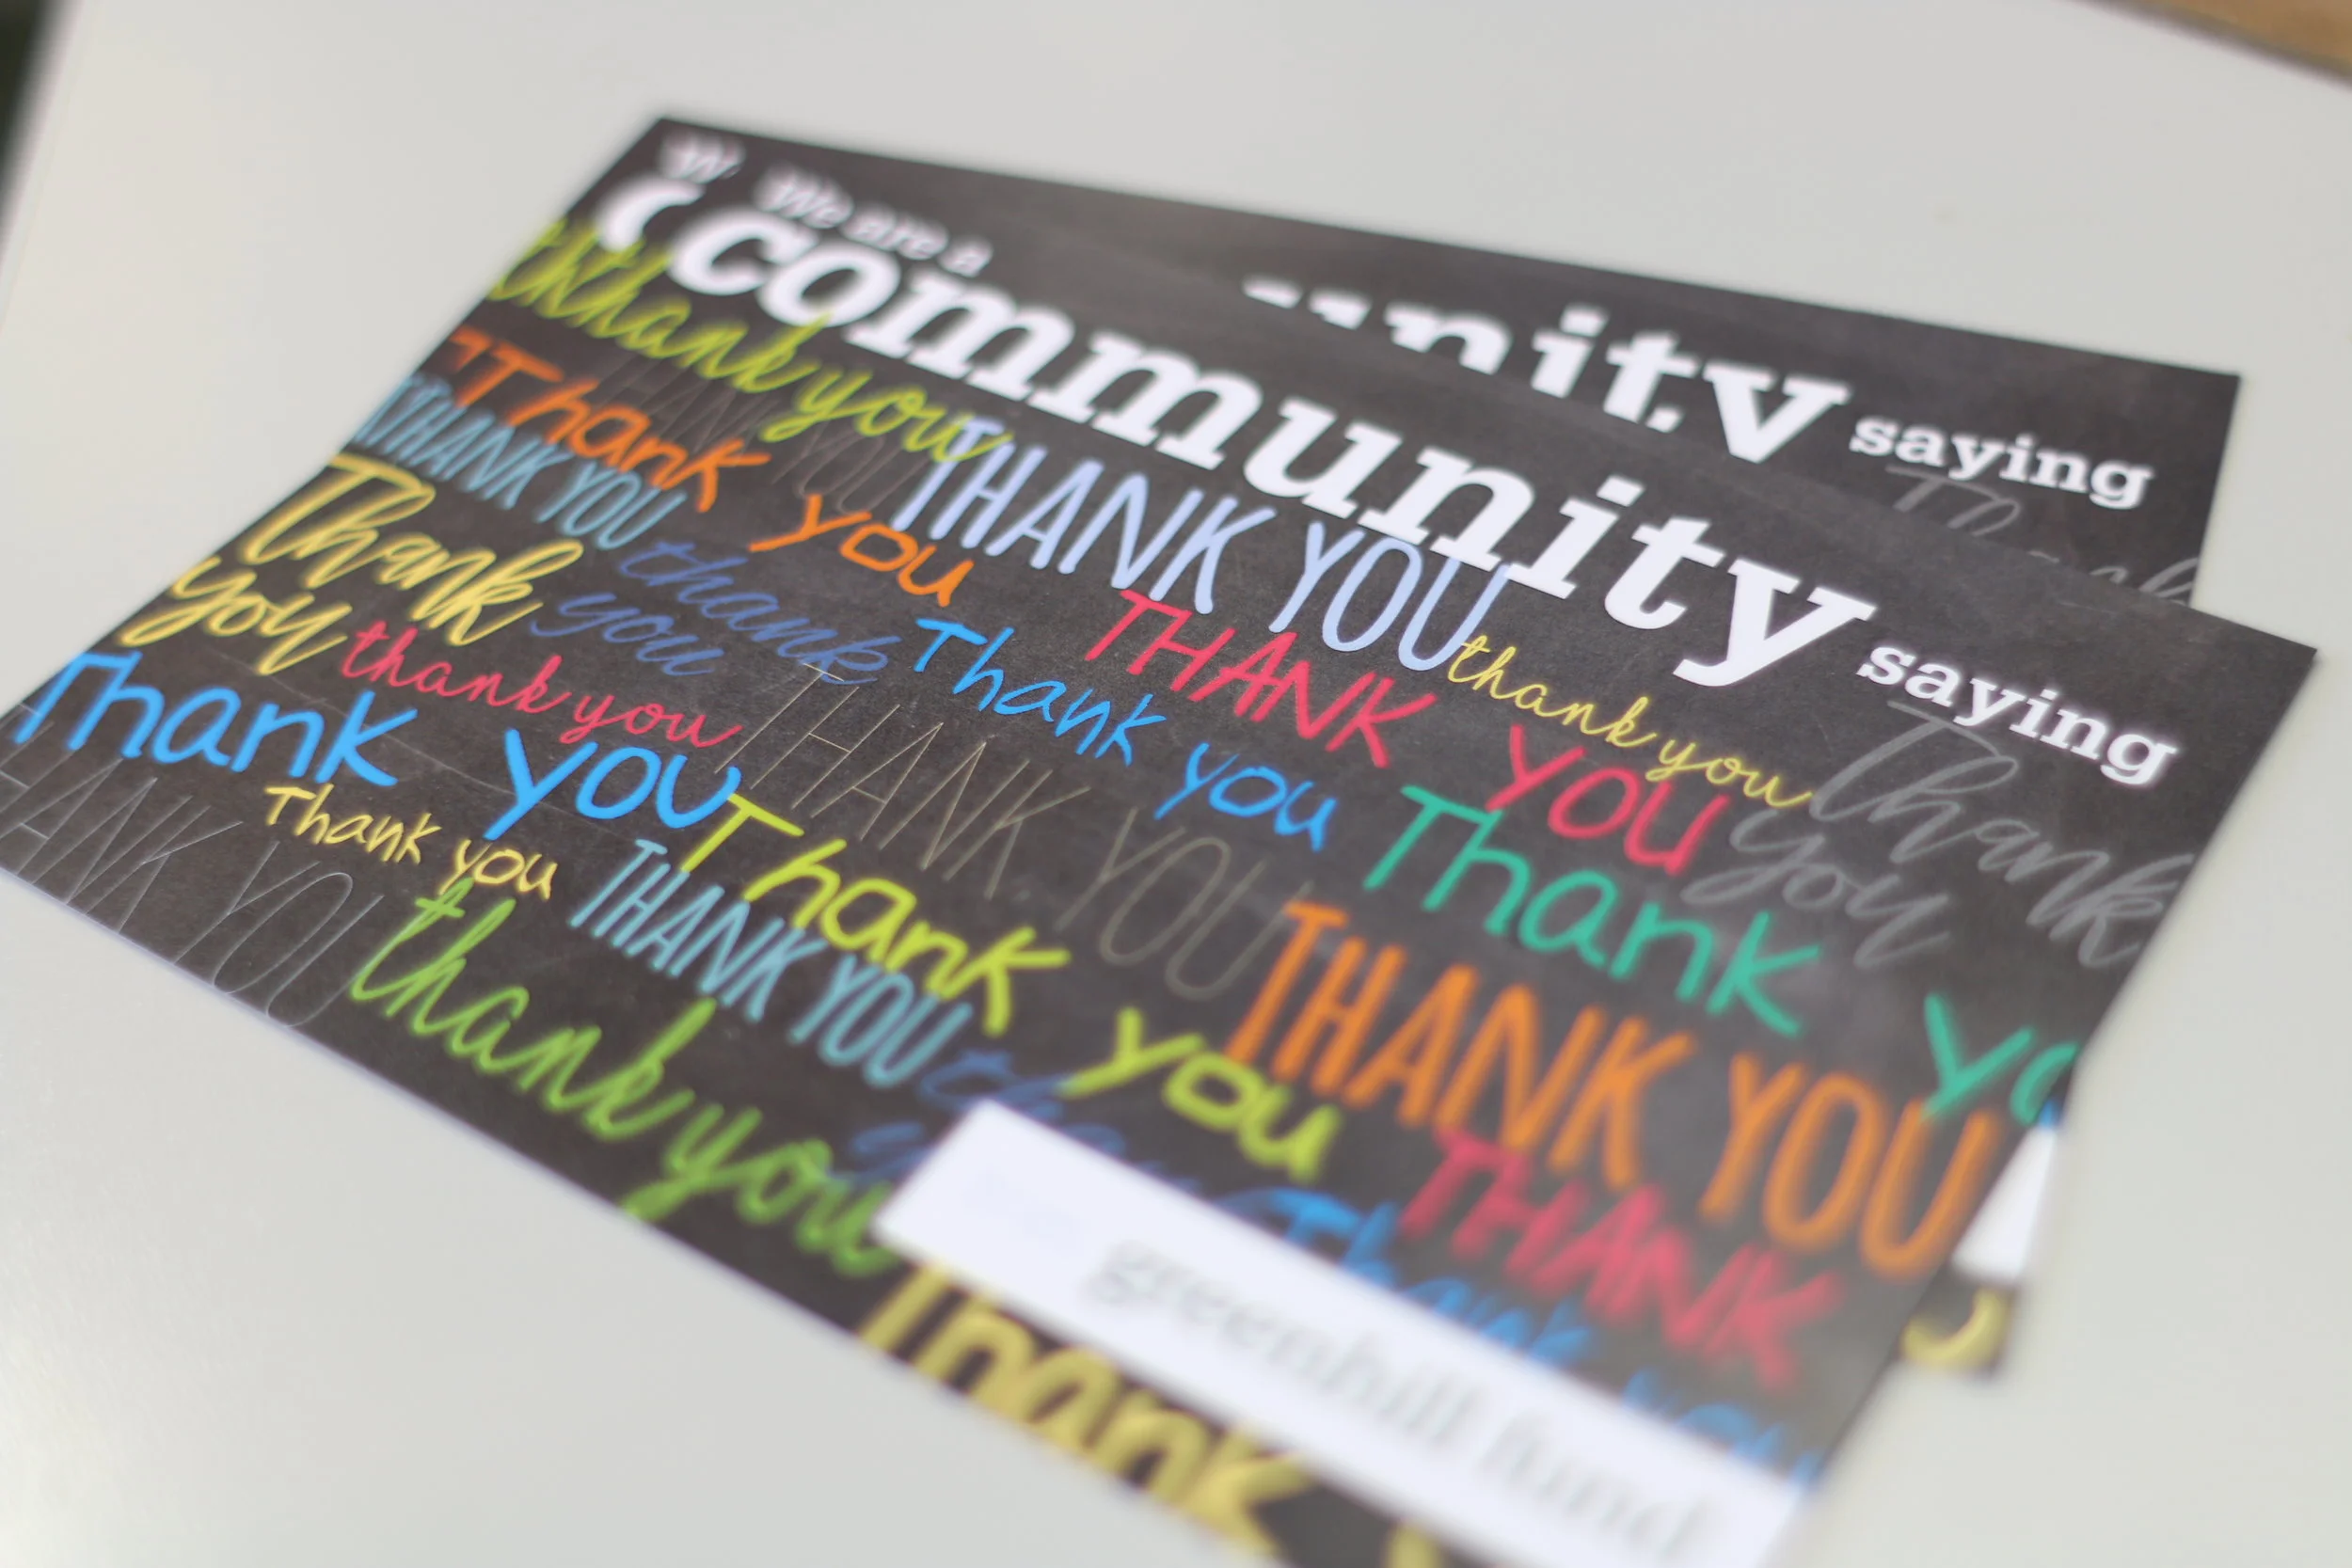 W We are a
unity saying
community saying
Thank
thank you
THANK YOU
Thank you
THANK YOU
THANK YOU
Thank you
thank you
Thank you
THANK YOU
thank you
Thank you
thank you
Thank you
THANK YOU
Thank yo
THANK YO
Thank you
THANK YOU
Thank you
THANK YOU
thank you
THANK
Thank you
greenhill fund
Thank